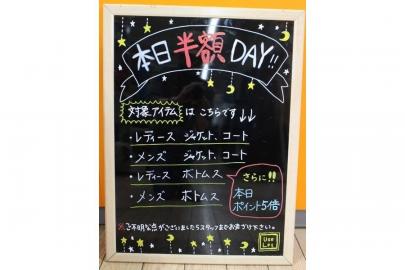 本日半額DAY!!
対象アイテムはこちらです↓↓
・レディース ジャケット、コート
・メンズ ジャケット、コート
・レディース ボトムス
・メンズ ボトムス
さらに!!
本日
ポイント5倍
※ご不明な点がございましたらスタッフまでお声がけ下さい。
Use
Let